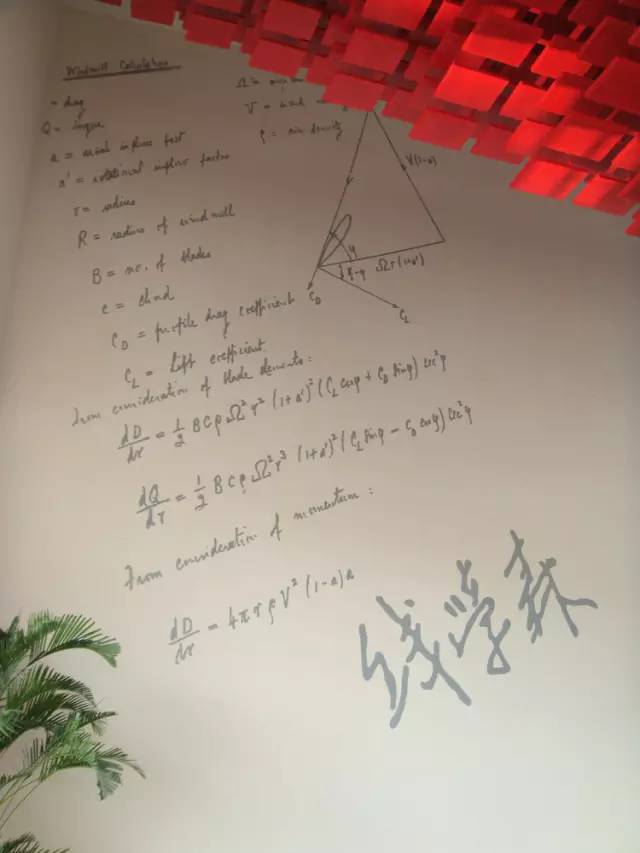 Windmill Calculation
= drag
Q = torque
a = axial inflow fact
a' = rotational inflow factor
r = radius
R = radius of windmill
B = no. of blades
c = chord
C_D = profile drag coefficient
C_L = Lift coefficient
Ω =
V = wind
ρ = air density
V(1-a)
φ
Ωr(1+a')
C_D
C_L
From consideration of blade elements:
dD/dr = 1/2 BCρΩ²r²(1+a')²(C_L cosφ + C_D sinφ) sec²φ
dQ/dr = 1/2 BCρΩ²r³(1+a')²(C_L sinφ - C_D cosφ) sec²φ
From consideration of momentum:
dD/dr = 4πrρV²(1-a)a
学森